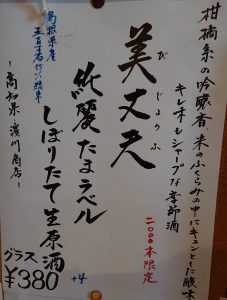 柑橘系の吟醸香 米のふくらみの中にキュンとした酸味
キレイもシャープな季節酒
美丈夫
びじょうふ
二〇〇〇本限定
純麗たまラベル
しぼりたて生原酒
+4
五百万石55%精米
〜高知県 濵川商店〜
グラス
¥380